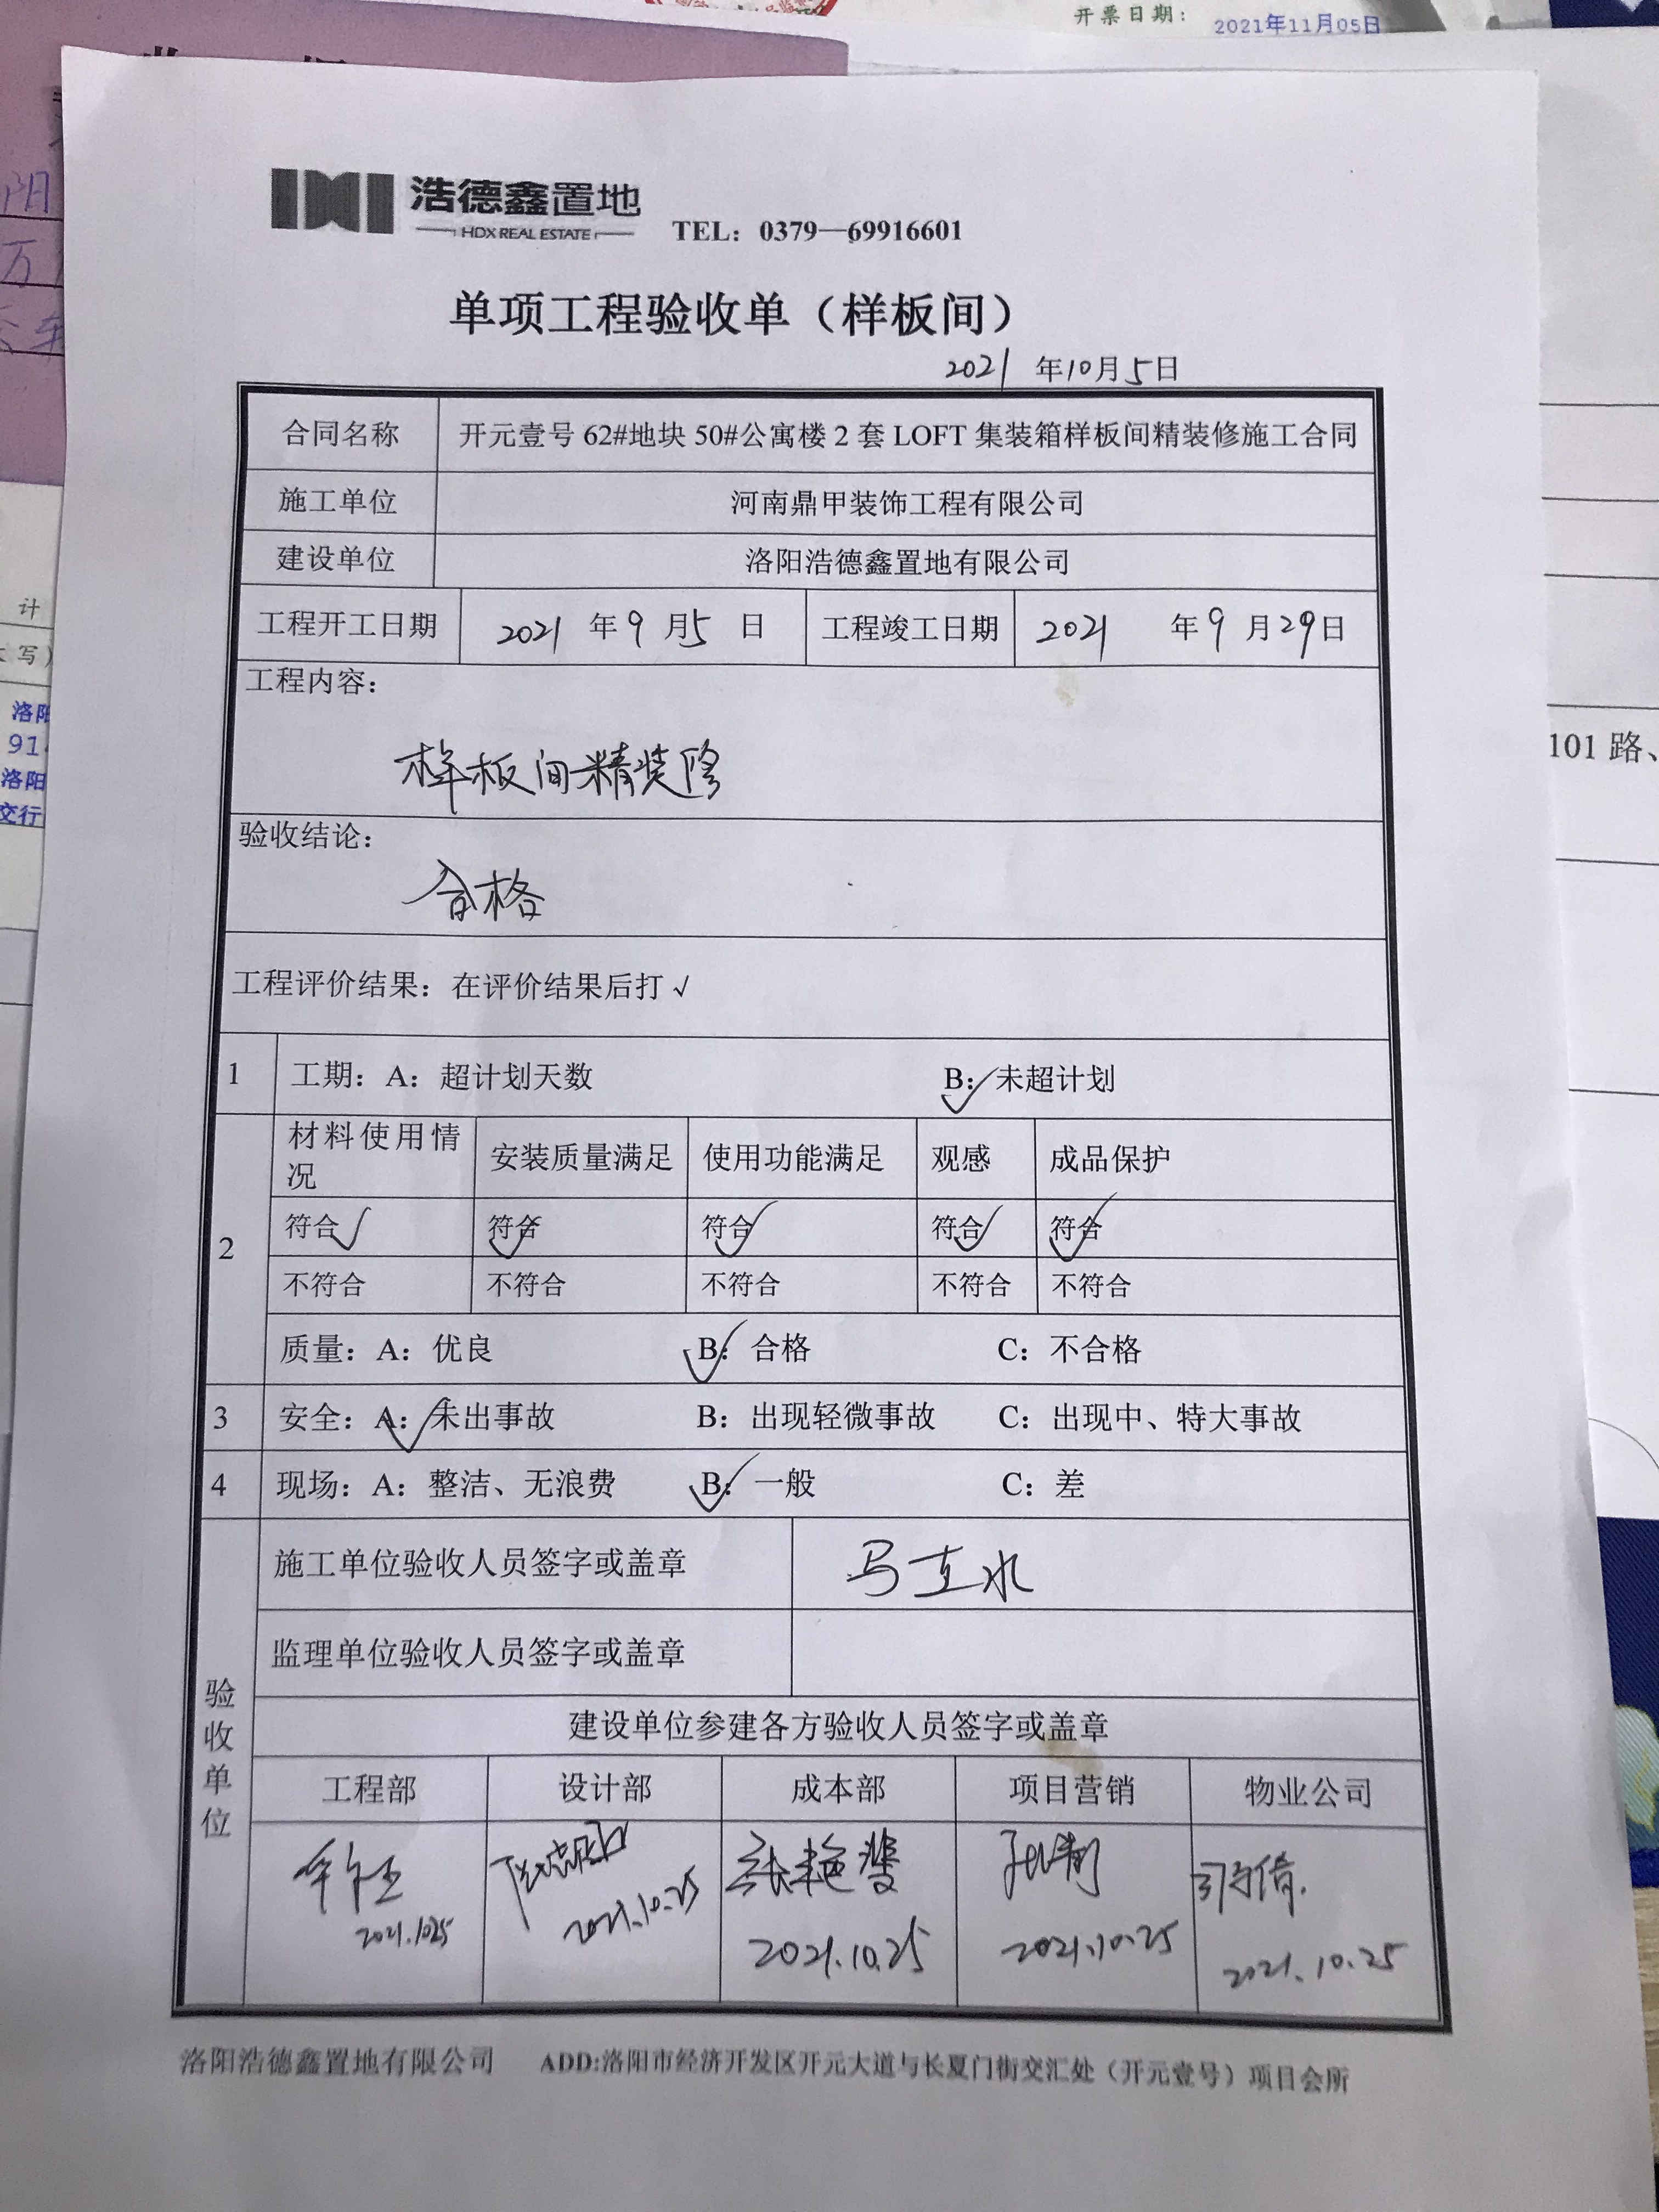 开票日期：
2021年11月05日
浩德鑫置地
HDX REAL ESTATE
TEL：0379—69916601
单项工程验收单（样板间）
2021 年10月5日
合同名称 开元壹号 62#地块 50#公寓楼 2 套 LOFT 集装箱样板间精装修施工合同
施工单位 河南鼎甲装饰工程有限公司
建设单位 洛阳浩德鑫置地有限公司
工程开工日期 2021 年 9 月 5 日 工程竣工日期 2021 年 9 月 29 日
工程内容：
样板间精装修
验收结论：
合格
工程评价结果：在评价结果后打 √
1 工期：A：超计划天数 B：✓未超计划
材料使用情况 安装质量满足 使用功能满足 观感 成品保护
2
符合✓ 符合✓ 符合✓ 符合✓ 符合✓
不符合 不符合 不符合 不符合 不符合
质量：A：优良 B：✓合格 C：不合格
3 安全：A：✓未出事故 B：出现轻微事故 C：出现中、特大事故
4 现场：A：整洁、无浪费 B：✓一般 C：差
验收单位
施工单位验收人员签字或盖章
监理单位验收人员签字或盖章
建设单位参建各方验收人员签字或盖章
工程部 设计部 成本部 项目营销 物业公司
张艳斐
2021.10.25 2021.10.25 2021.10.25 2021.10.25 2021.10.25
洛阳浩德鑫置地有限公司 ADD:洛阳市经济开发区开元大道与长夏门街交汇处（开元壹号）项目会所
计
写）
洛阳
91
洛阳
交行
101 路、